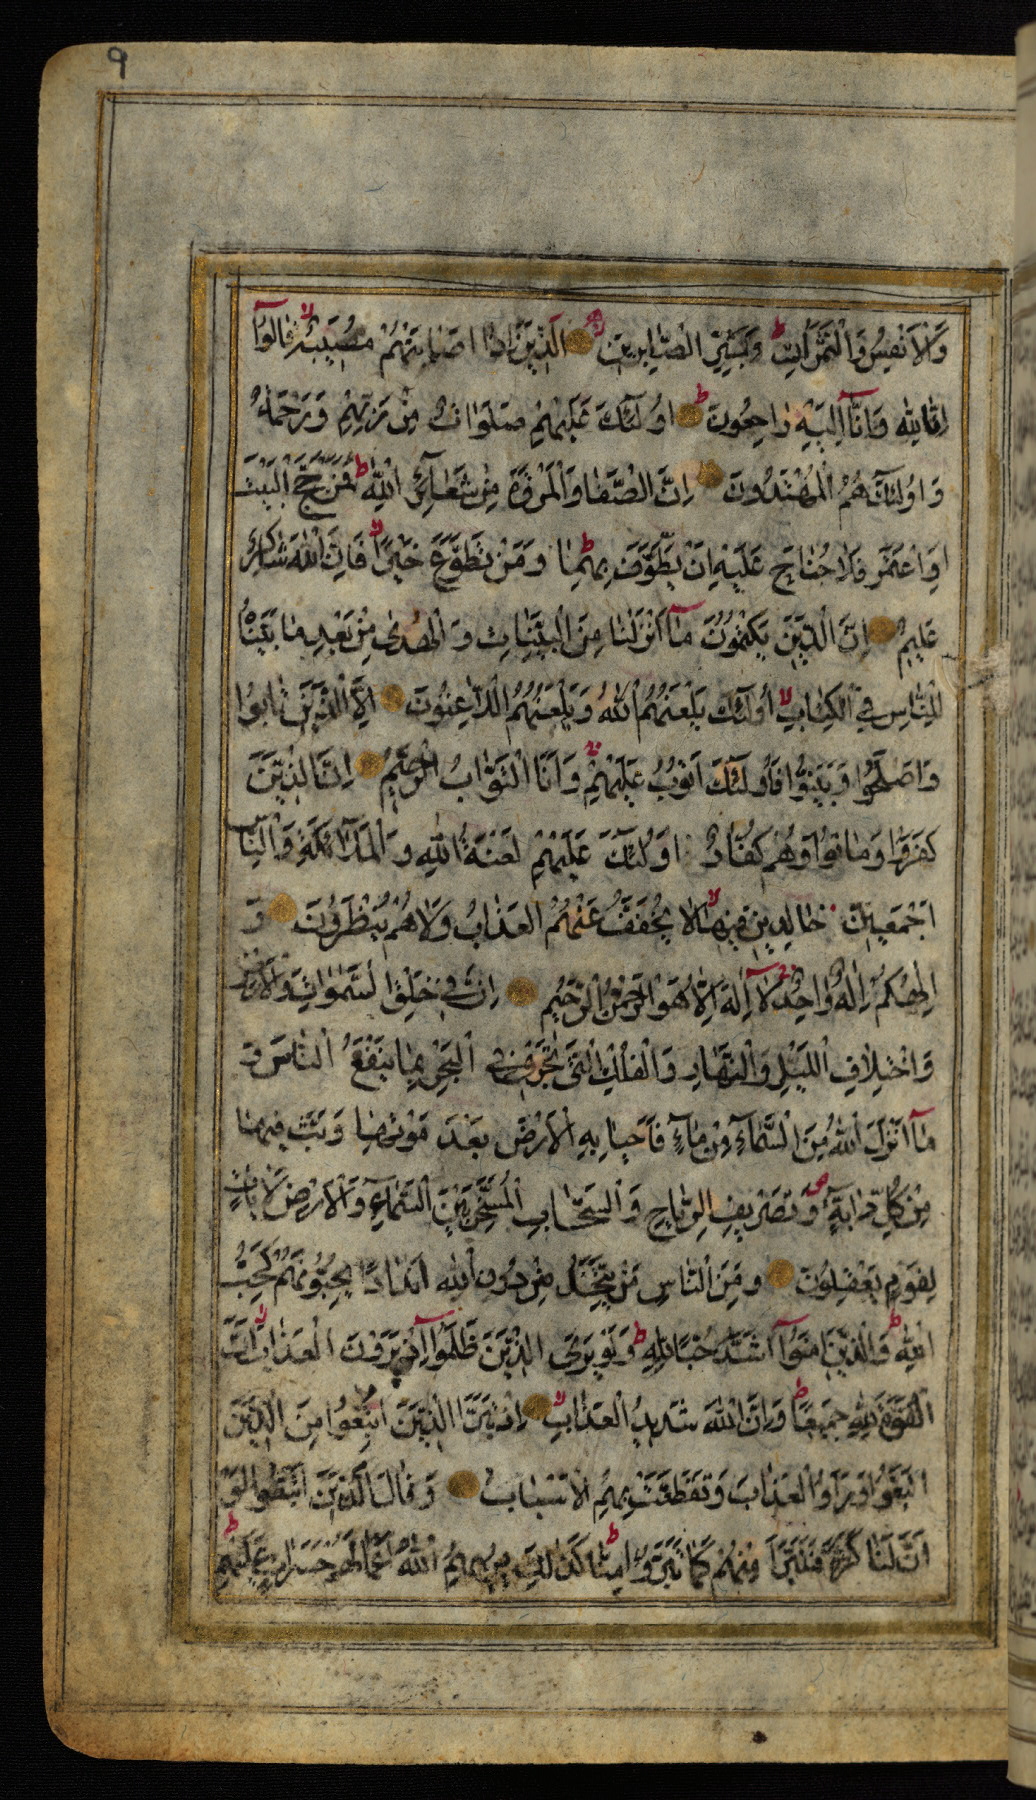 ٩
وَالْاَنْفُسِ وَالثَّمَرَاتِ ط وَبَشِّرِ الصَّابِرِينَ لا الَّذِينَ اِذَا اَصَابَتْهُمْ مُصِيبَةٌ لا قَالُوٓا
اِنَّا لِلّٰهِ وَاِنَّٓا اِلَيْهِ رَاجِعُونَ ط اُولٰٓئِكَ عَلَيْهِمْ صَلَوَاتٌ مِنْ رَبِّهِمْ وَرَحْمَةٌ
وَاُولٰٓئِكَ هُمُ الْمُهْتَدُونَ اِنَّ الصَّفَا وَالْمَرْوَةَ مِنْ شَعَآئِرِ اللّٰهِ ط فَمَنْ حَجَّ الْبَيْتَ
اَوِ اعْتَمَرَ فَلَا جُنَاحَ عَلَيْهِ اَنْ يَطَّوَّفَ بِهِمَا ط وَمَنْ تَطَوَّعَ خَيْرًا لا فَاِنَّ اللّٰهَ شَاكِرٌ
عَلِيمٌ اِنَّ الَّذِينَ يَكْتُمُونَ مَٓا اَنْزَلْنَا مِنَ الْبَيِّنَاتِ وَالْهُدٰى مِنْ بَعْدِ مَا بَيَّنَّاهُ
لِلنَّاسِ فِي الْكِتَابِ لا اُولٰٓئِكَ يَلْعَنُهُمُ اللّٰهُ وَيَلْعَنُهُمُ اللَّاعِنُونَ اِلَّا الَّذِينَ تَابُوا
وَاَصْلَحُوا وَبَيَّنُوا فَاُولٰٓئِكَ اَتُوبُ عَلَيْهِمْ وَاَنَا التَّوَّابُ الرَّحِيمُ اِنَّ الَّذِينَ
كَفَرُوا وَمَاتُوا وَهُمْ كُفَّارٌ اُولٰٓئِكَ عَلَيْهِمْ لَعْنَةُ اللّٰهِ وَالْمَلٰٓئِكَةِ وَالنَّاسِ
اَجْمَعِينَ خَالِدِينَ فِيهَا لا لَا يُخَفَّفُ عَنْهُمُ الْعَذَابُ وَلَا هُمْ يُنْظَرُونَ وَ
اِلٰهُكُمْ اِلٰهٌ وَاحِدٌ لَٓا اِلٰهَ اِلَّا هُوَ الرَّحْمٰنُ الرَّحِيمُ اِنَّ فِي خَلْقِ السَّمٰوَاتِ وَالْاَرْضِ
وَاخْتِلَافِ اللَّيْلِ وَالنَّهَارِ وَالْفُلْكِ الَّتِي تَجْرِي فِي الْبَحْرِ بِمَا يَنْفَعُ النَّاسَ وَ
مَٓا اَنْزَلَ اللّٰهُ مِنَ السَّمَآءِ مِنْ مَآءٍ فَاَحْيَا بِهِ الْاَرْضَ بَعْدَ مَوْتِهَا وَبَثَّ فِيهَا
مِنْ كُلِّ دَآبَّةٍ ص وَتَصْرِيفِ الرِّيَاحِ وَالسَّحَابِ الْمُسَخَّرِ بَيْنَ السَّمَآءِ وَالْاَرْضِ لَاٰيَاتٍ
لِقَوْمٍ يَعْقِلُونَ وَمِنَ النَّاسِ مَنْ يَتَّخِذُ مِنْ دُونِ اللّٰهِ اَنْدَادًا يُحِبُّونَهُمْ كَحُبِّ
اللّٰهِ ط وَالَّذِينَ اٰمَنُوٓا اَشَدُّ حُبًّا لِلّٰهِ ط وَلَوْ يَرَى الَّذِينَ ظَلَمُوٓا اِذْ يَرَوْنَ الْعَذَابَ لا اَنَّ
الْقُوَّةَ لِلّٰهِ جَمِيعًا ط وَاَنَّ اللّٰهَ شَدِيدُ الْعَذَابِ لا اِذْ تَبَرَّاَ الَّذِينَ اتُّبِعُوا مِنَ الَّذِينَ
اتَّبَعُوا وَرَاَوُا الْعَذَابَ وَتَقَطَّعَتْ بِهِمُ الْاَسْبَابُ وَقَالَ الَّذِينَ اتَّبَعُوا لَوْ
اَنَّ لَنَا كَرَّةً فَنَتَبَرَّاَ مِنْهُمْ كَمَا تَبَرَّؤُا مِنَّا ط كَذٰلِكَ يُرِيهِمُ اللّٰهُ اَعْمَالَهُمْ حَسَرَاتٍ عَلَيْهِمْ ط